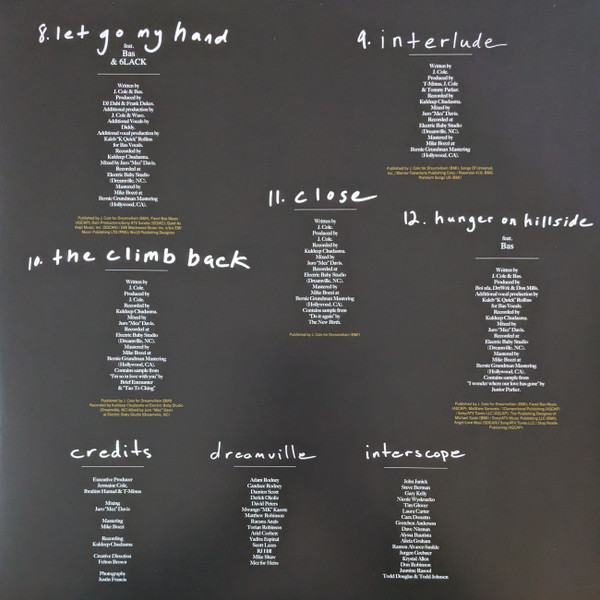 8. let go my hand
feat.
Bas
& 6LACK
Written by
J. Cole & Bas.
Produced by
DJ Dahi & Frank Dukes.
Additional production by
J. Cole & Wavo.
Additional Vocals by
Diddy.
Additional vocal production by
Kaleb "K Quick" Rollins
for Bas Vocals.
Recorded by
Kuldeep Chudasma.
Mixed by Juro "Mez" Davis.
Recorded at
Electric Baby Studio
(Dreamville, NC).
Mastered by
Mike Bozzi at
Bernie Grundman Mastering
(Hollywood, CA).
9. interlude
Written by
J. Cole.
Produced by
T-Minus, J. Cole
& Tommy Parker.
Recorded by
Kuldeep Chudasma.
Mixed by
Juro "Mez" Davis.
Recorded at
Electric Baby Studio
(Dreamville, NC).
Mastered by
Mike Bozzi at
Bernie Grundman Mastering
(Hollywood, CA).
10. the climb back
Written by
J. Cole.
Produced by
J. Cole.
Recorded by
Kuldeep Chudasma.
Mixed by
Juro "Mez" Davis.
Recorded at
Electric Baby Studio
(Dreamville, NC).
Mastered by
Mike Bozzi at
Bernie Grundman Mastering
(Hollywood, CA).
Contains sample from
"I'm so in love with you" by
Brief Encounter
& "Tao To Ching"
11. close
Written by
J. Cole.
Produced by
J. Cole.
Recorded by
Kuldeep Chudasma.
Mixed by
Juro "Mez" Davis.
Recorded at
Electric Baby Studio
(Dreamville, NC).
Mastered by
Mike Bozzi at
Bernie Grundman Mastering
(Hollywood, CA).
Contains sample from
"Do it again" by
The New Birth.
Published by J. Cole for Dreamvillain (BMI)
12. hunger on hillside
feat.
Bas
Written by
J. Cole & Bas.
Produced by
Boi-1da, DeWitt & Don Mills.
Additional vocal production by
Kaleb "K Quick" Rollins
for Bas Vocals.
Recorded by
Kuldeep Chudasma.
Mixed by
Juro "Mez" Davis.
Recorded at
Electric Baby Studio
(Dreamville, NC).
Mastered by
Mike Bozzi at
Bernie Grundman Mastering
(Hollywood, CA).
Contains sample from
"I wonder where our love has gone" by
Junior Parker.
credits
Executive Producer
Jermaine Cole,
Ibrahim Hamad & T-Minus
Mixing
Juro "Mez" Davis
Mastering
Mike Bozzi
Recording
Kuldeep Chudasma
Creative Direction
Felton Brown
Photography
Justin Francis
dreamville
Adam Rodney
Candace Rodney
Damien Scott
Derick Okolie
David Peters
Mwango "MK" Kasote
Matthew Robinson
Racana Arafo
Torian Robinson
Ariel Corbett
Yadira Espinal
Scott Lazer
RJ Hill
Mike Shaw
Mez for Heirs
interscope
John Janick
Steve Berman
Gary Kelly
Nicole Wyskoarko
Tim Glover
Laura Carter
Cara Donatto
Gretchen Anderson
Dave Nieman
Alyssa Bautista
Alicia Graham
Ramon Alvarez-Smikle
Jurgen Grebner
Krystal Alios
Don Robinson
Jasmine Rasool
Todd Douglas & Todd Johnson